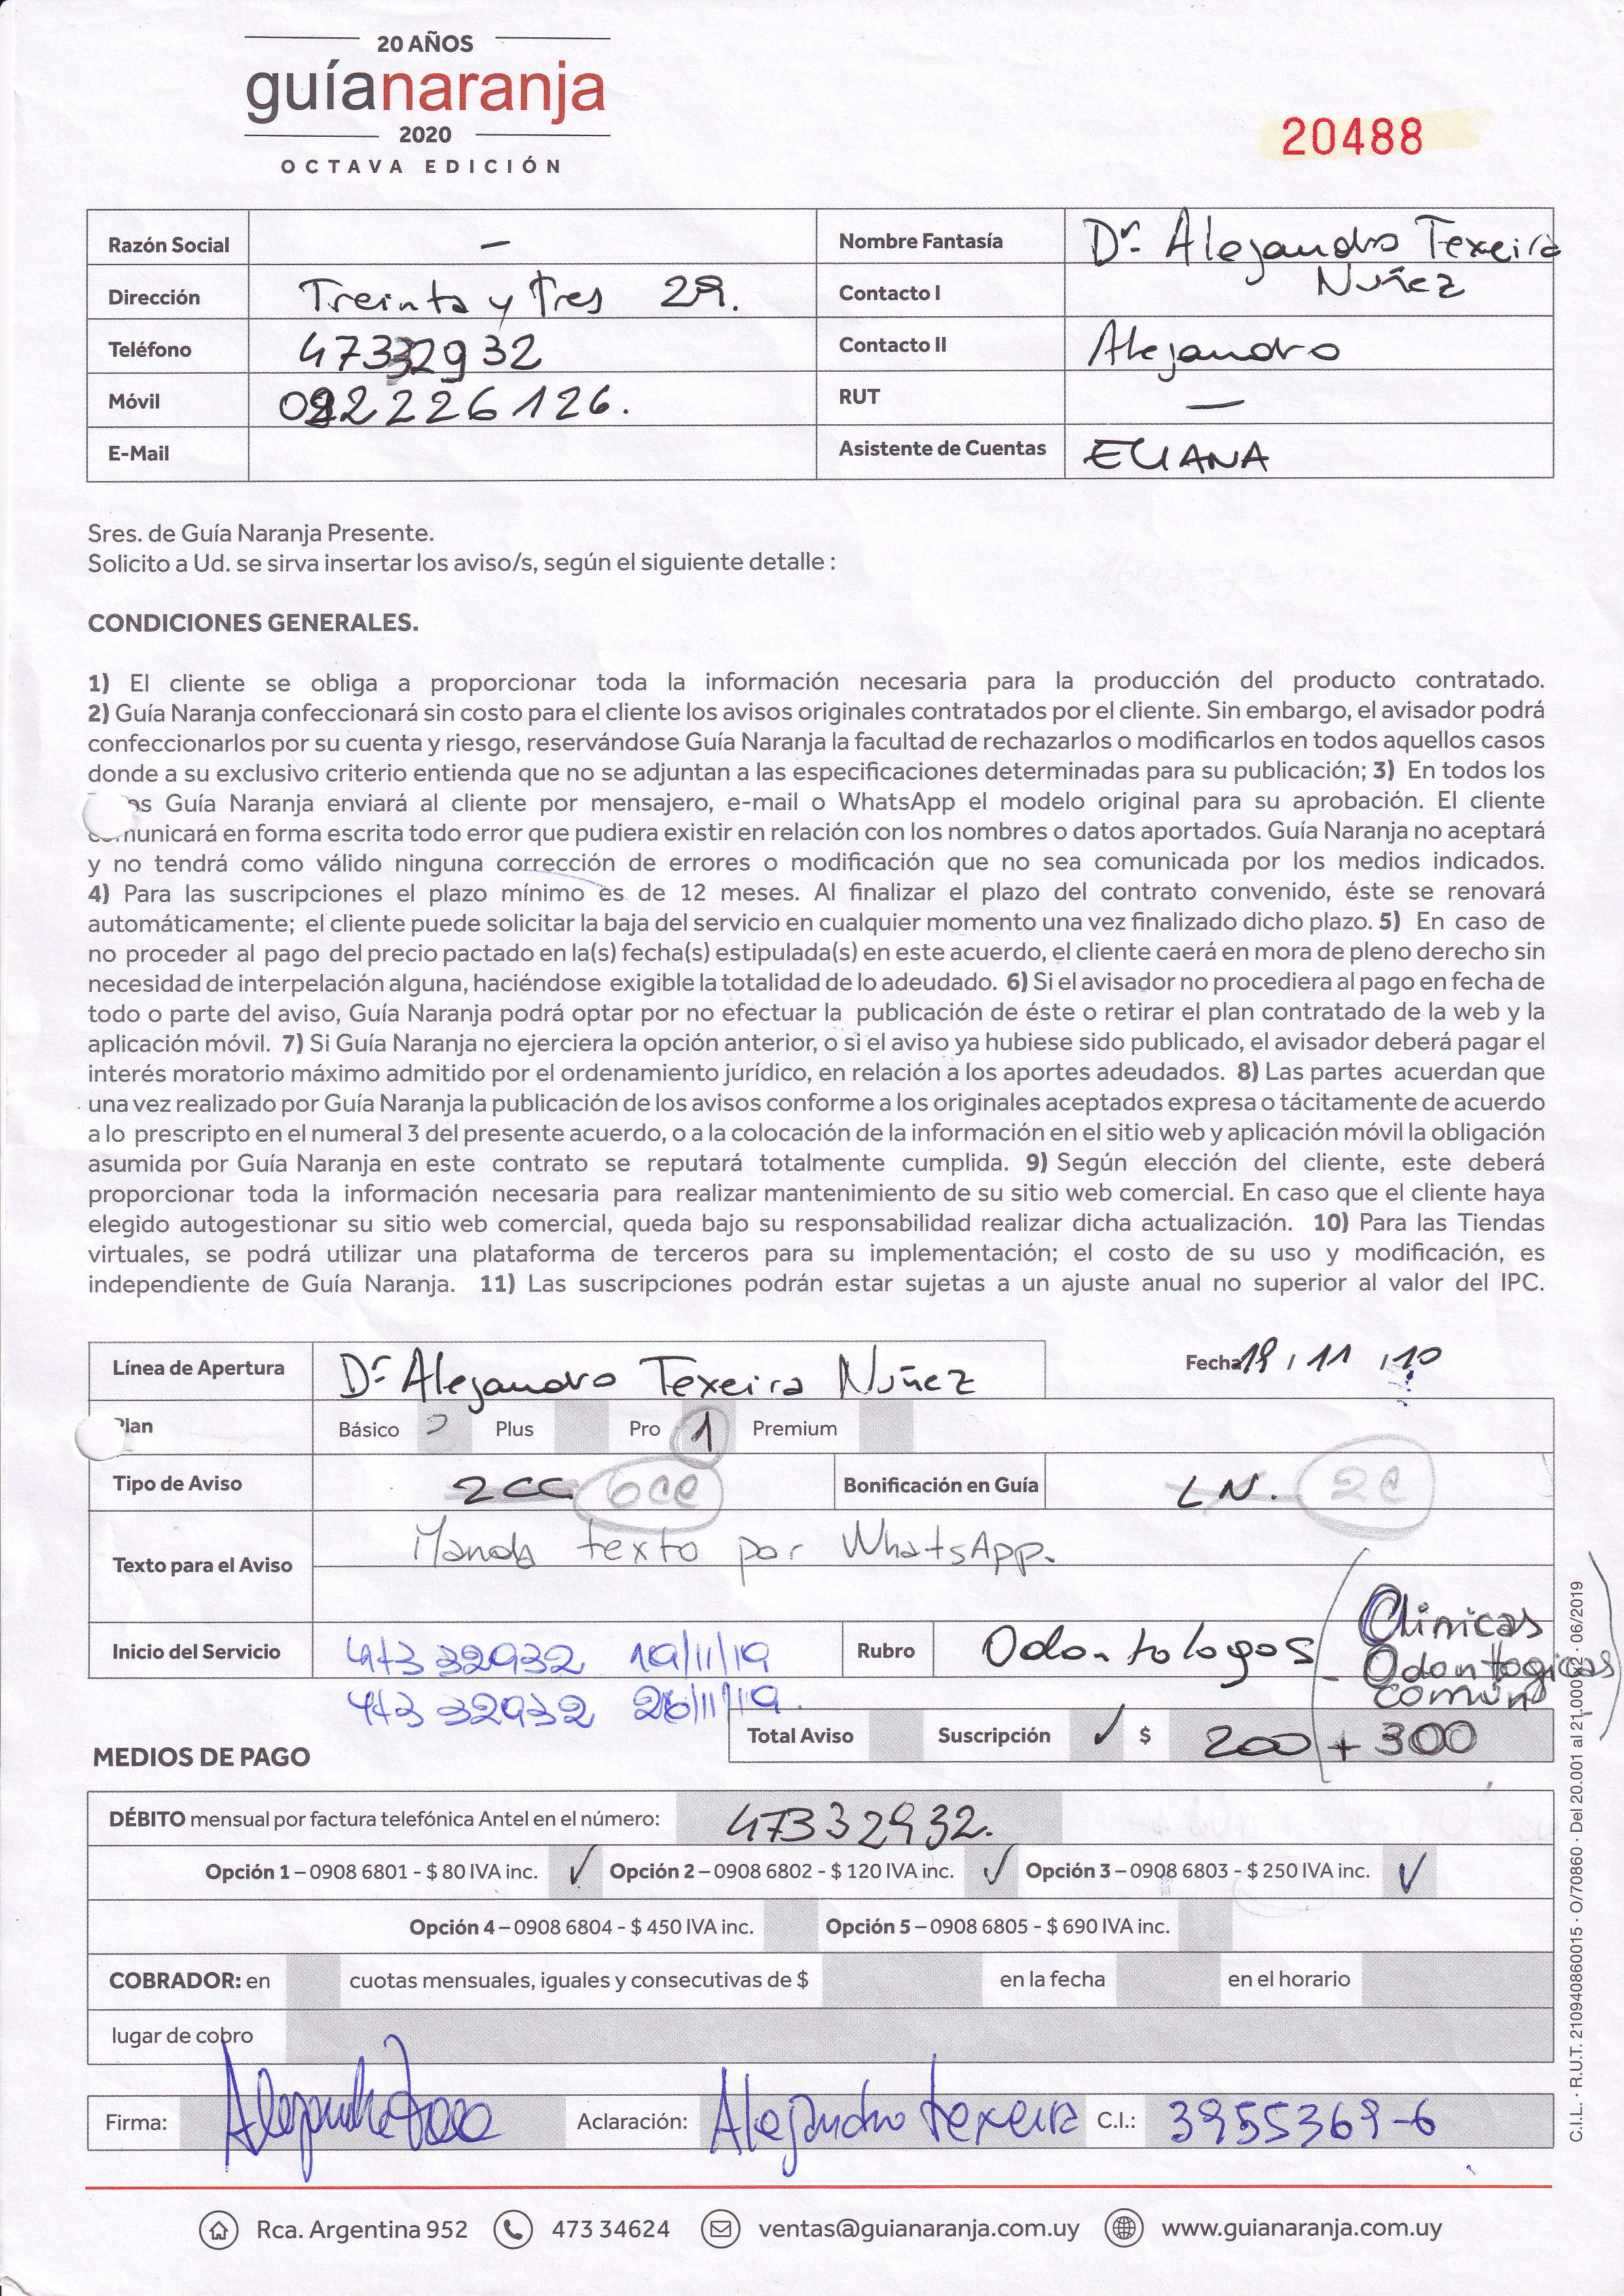 20 AÑOS
guíanaranja
2020
OCTAVA EDICIÓN
20488
Razón Social —
Nombre Fantasía Dr. Alejandro Texeira
Nuñez
Dirección Treinta y Tres 29.
Contacto I
Teléfono 47332932
Contacto II Alejandro
Móvil 092226126.
RUT —
E-Mail
Asistente de Cuentas ELIANA
Sres. de Guía Naranja Presente.
Solicito a Ud. se sirva insertar los aviso/s, según el siguiente detalle :
CONDICIONES GENERALES.
1) El cliente se obliga a proporcionar toda la información necesaria para la producción del producto contratado.
2) Guía Naranja confeccionará sin costo para el cliente los avisos originales contratados por el cliente. Sin embargo, el avisador podrá
confeccionarlos por su cuenta y riesgo, reservándose Guía Naranja la facultad de rechazarlos o modificarlos en todos aquellos casos
donde a su exclusivo criterio entienda que no se adjuntan a las especificaciones determinadas para su publicación; 3) En todos los
Guía Naranja enviará al cliente por mensajero, e-mail o WhatsApp el modelo original para su aprobación. El cliente
comunicará en forma escrita todo error que pudiera existir en relación con los nombres o datos aportados. Guía Naranja no aceptará
y no tendrá como válido ninguna corrección de errores o modificación que no sea comunicada por los medios indicados.
4) Para las suscripciones el plazo mínimo es de 12 meses. Al finalizar el plazo del contrato convenido, éste se renovará
automáticamente; el cliente puede solicitar la baja del servicio en cualquier momento una vez finalizado dicho plazo. 5) En caso de
no proceder al pago del precio pactado en la(s) fecha(s) estipulada(s) en este acuerdo, el cliente caerá en mora de pleno derecho sin
necesidad de interpelación alguna, haciéndose exigible la totalidad de lo adeudado. 6) Si el avisador no procediera al pago en fecha de
todo o parte del aviso, Guía Naranja podrá optar por no efectuar la publicación de éste o retirar el plan contratado de la web y la
aplicación móvil. 7) Si Guía Naranja no ejerciera la opción anterior, o si el aviso ya hubiese sido publicado, el avisador deberá pagar el
interés moratorio máximo admitido por el ordenamiento jurídico, en relación a los aportes adeudados. 8) Las partes acuerdan que
una vez realizado por Guía Naranja la publicación de los avisos conforme a los originales aceptados expresa o tácitamente de acuerdo
a lo prescripto en el numeral 3 del presente acuerdo, o a la colocación de la información en el sitio web y aplicación móvil la obligación
asumida por Guía Naranja en este contrato se reputará totalmente cumplida. 9) Según elección del cliente, este deberá
proporcionar toda la información necesaria para realizar mantenimiento de su sitio web comercial. En caso que el cliente haya
elegido autogestionar su sitio web comercial, queda bajo su responsabilidad realizar dicha actualización. 10) Para las Tiendas
virtuales, se podrá utilizar una plataforma de terceros para su implementación; el costo de su uso y modificación, es
independiente de Guía Naranja. 11) Las suscripciones podrán estar sujetas a un ajuste anual no superior al valor del IPC.
Línea de Apertura Dr Alejandro Texeira Nuñez
Fecha 19 / 11 /
Plan Básico Plus Pro 1 Premium
Tipo de Aviso 2CC 6CC Bonificación en Guía LN. 2C
Texto para el Aviso Manda texto por WhatsApp.
Inicio del Servicio 473 32932 19/11/19
473 32932 26/11/19.
Rubro Odontologos
Clinicas
Odontogicas
común
Total Aviso Suscripción ✓ $ 200 + 300
MEDIOS DE PAGO
DÉBITO mensual por factura telefónica Antel en el número: 47332932.
Opción 1 – 0908 6801 - $ 80 IVA inc. ✓ Opción 2 – 0908 6802 - $ 120 IVA inc. ✓ Opción 3 – 0908 6803 - $ 250 IVA inc. ✓
Opción 4 – 0908 6804 - $ 450 IVA inc. Opción 5 – 0908 6805 - $ 690 IVA inc.
COBRADOR: en cuotas mensuales, iguales y consecutivas de $ en la fecha en el horario
lugar de cobro
Firma: Aclaración: Alejandro Texeira C.I.: 3955369-6
Rca. Argentina 952 473 34624 ventas@guianaranja.com.uy www.guianaranja.com.uy
C.I.L. · R.U.T. 210940860015 · O/70860 · Del 20.001 al 21.000 x2 · 06/2019